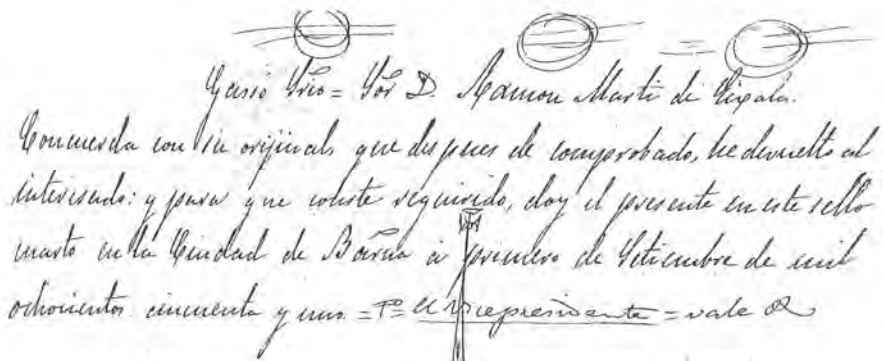 Gassó Srio = Sor D. Ramon Marti de Eixala.
Concuerda con su orijinal, que despues de comprobado, he devuelto al
interesado: y para que conste requirido, doy el presente en este sello
cuarto en la Ciudad de Barna á primero de Setiembre de mil
ochocientos cincuenta y uno = = el vicepresidente = vale